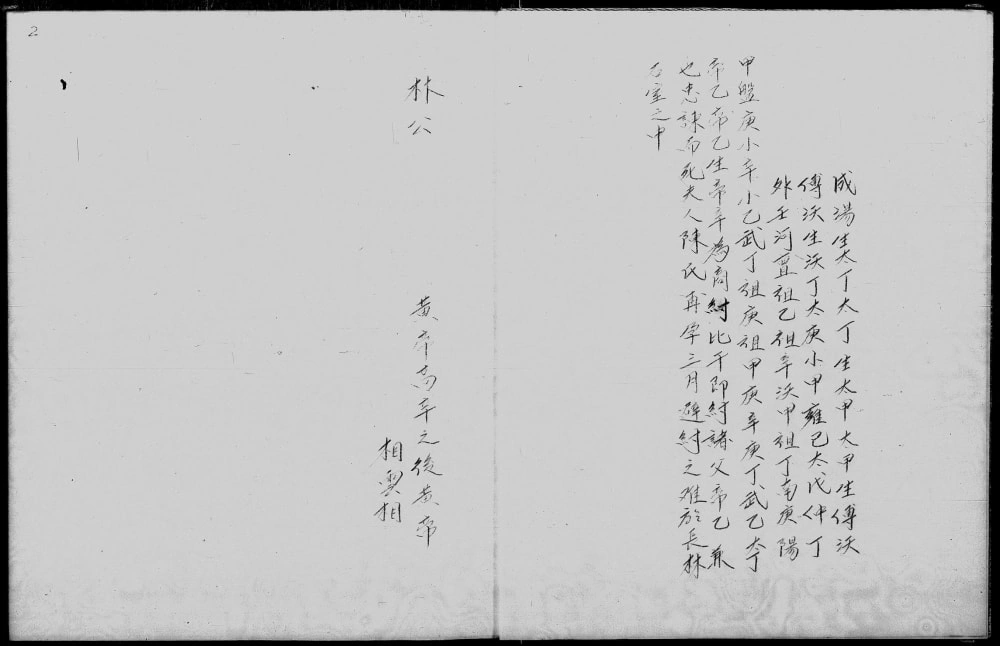 成湯生太丁太丁生太甲太甲生傅沃
傅沃生沃丁太庚小甲雍已太戊仲丁
外壬河亶祖乙祖辛沃甲祖丁南庚陽
甲盤庚小辛小乙武丁祖庚祖甲庚辛庚丁武乙太丁
帝乙帝乙生帝辛為商紂比干即紂諸父帝乙
也忠諫而死夫人陳氏再孕三月避紂之难於長林
石室之中
2
林公
黃帝高辛之後黃帝
相雲相